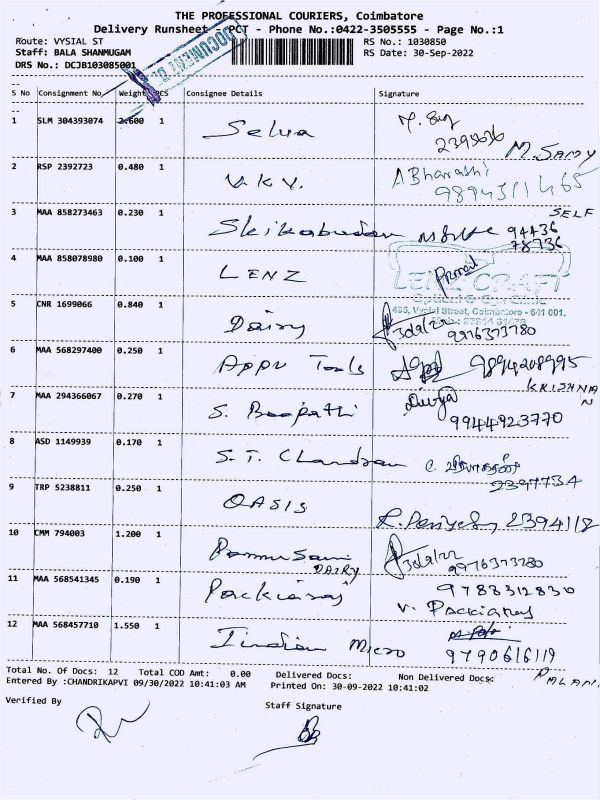 THE PROFESSIONAL COURIERS, Coimbatore
Delivery Runsheet - PCT - Phone No.:0422-3505555 - Page No.:1
Route: VYSIAL ST RS No.: 1030850
Staff: BALA SHANMUGAM RS Date: 30-Sep-2022
DRS No.: DCJB103085001
DOCUMENT
S No Consignment No Weight PCS Consignee Details Signature
1 SLM 304393074 2.600 1 Selva
2394636 M. Samy
2 RSP 2392723 0.480 1 V.K.V. A Bharathi
9894311465
3 MAA 858273463 0.230 1 SELF
94436
78736
4 MAA 858078980 0.100 1 LENZ
LENZ CRAFT
Optical & Eye Clinic
495, Vysial Street, Coimbatore - 641 001.
5 CNR 1699066 0.840 1 Dairy 30/9/22
9976373780
6 MAA 568297400 0.250 1 Appu Tools 9894208995
KRISHNAN
7 MAA 294366067 0.270 1 S. Boopathi Divya
9944923770
8 ASD 1149939 0.170 1 S.T. Chandran
2397734
9 TRP 5238811 0.250 1 OASIS 2394118
10 CMM 794003 1.200 1 Ponnusami 30/9/22
DAIRY 9976373780
11 MAA 568541345 0.190 1 Packiaraj 9788312830
V. Packiaraj
12 MAA 568457710 1.550 1 Indian Micro
9790616119
PALANI
Total No. Of Docs: 12 Total COD Amt: 0.00 Delivered Docs: Non Delivered Docs:
Entered By :CHANDRIKAPVI 09/30/2022 10:41:03 AM Printed On: 30-09-2022 10:41:02
Verified By Staff Signature